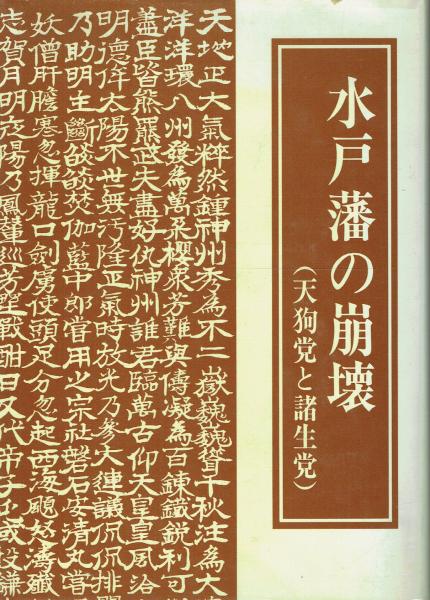 水戸藩の崩壊
(天狗党と諸生党)
天地正大氣粹然鍾神州秀為不二嶽巍巍聳千秋注為大
洋洋環八州發為萬朶櫻衆芳難與儔凝為百錬鐵鋭利可
藎臣皆熊羆武夫盡好仇神州誰君臨萬古仰天皇皇風洽
明德侔太陽不世無汚隆正氣時放光乃參大連議侃侃排
乃助明主斷燄燄焚伽藍中郎嘗用之宗社磐石安清丸嘗
妖僧肝膽寒忽揮龍口劍虜使頭足分忽起西海颶怒濤殲
志賀月明夜陽乃鳳輦巡芳野戰酣日又代帝子屯或投鎌